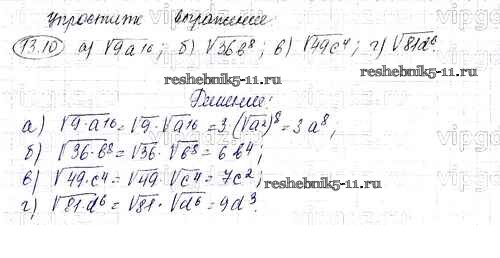 Упростите выражения
13.10 а) √9a¹⁶; б) √36b⁸; в) √49c⁴; г) √81d⁶.
reshebnik5-11.ru
Решение:
а) √9·a¹⁶ = √9 · √a¹⁶ = 3·(√a²)⁸ = 3a⁸;
б) √36·b⁸ = √36 · √b⁸ = 6b⁴;
в) √49·c⁴ = √49 · √c⁴ = 7c²;
reshebnik5-11.ru
г) √81·d⁶ = √81 · √d⁶ = 9d³.